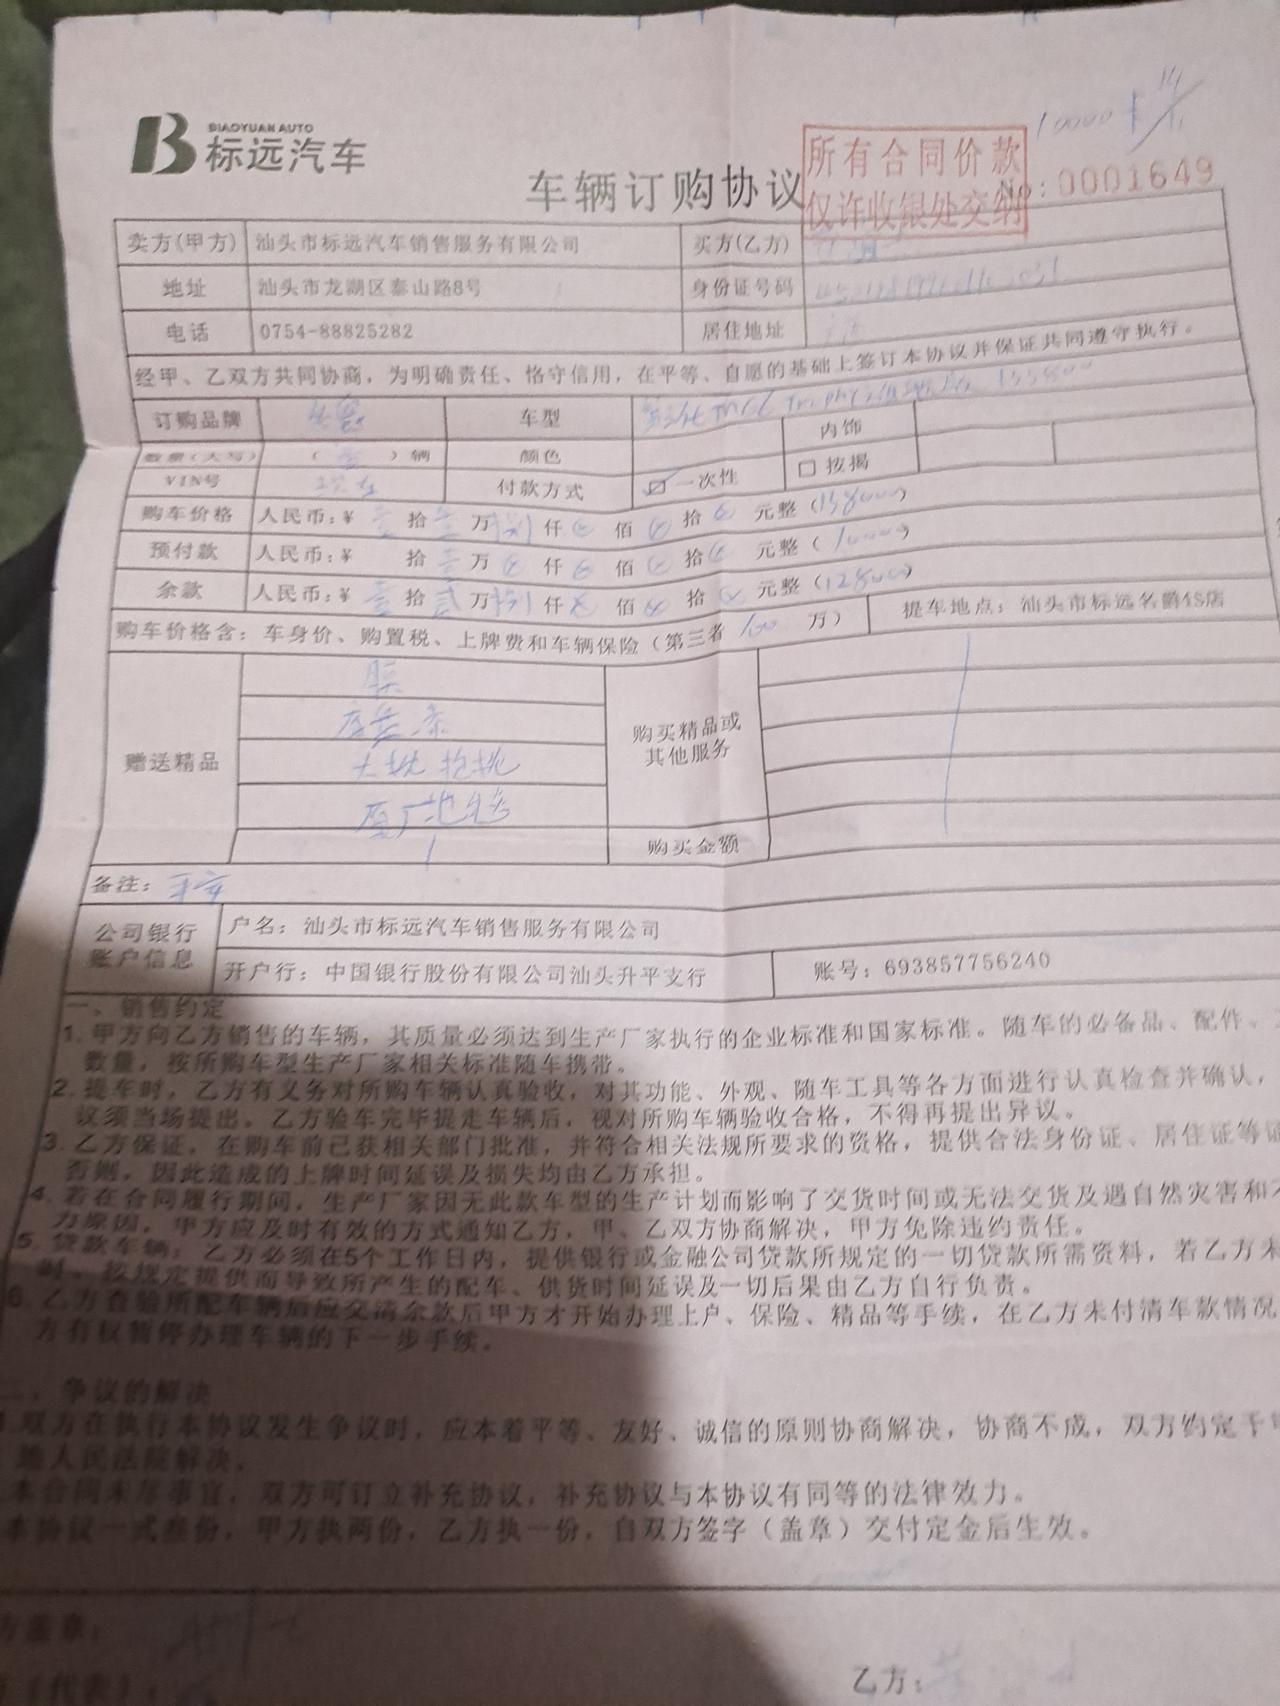 BIAOYUAN AUTO
标远汽车
10000
车辆订购协议
所有合同价款
仅许收银处交纳
No:0001649
卖方(甲方) 汕头市标远汽车销售服务有限公司 买方(乙方)
地址 汕头市龙湖区泰山路8号 身份证号码
电话 0754-88825282 居住地址
经甲、乙双方共同协商，为明确责任、恪守信用，在平等、自愿的基础上签订本协议并保证共同遵守执行。
订购品牌 名爵 车型 第三代MG6 Trophy 135800
内饰
数量(大写) ( 壹 ) 辆 颜色
VIN号 付款方式 ☑一次性 □按揭
购车价格 人民币：¥ 壹 拾 万 捌 仟 佰 拾 元整 (138000)
预付款 人民币：¥ 拾 壹 万 仟 佰 拾 元整 (10000)
余款 人民币：¥ 壹 拾 贰 万 捌 仟 佰 拾 元整 (128000)
购车价格含：车身价、购置税、上牌费和车辆保险（第三者 100 万） 提车地点：汕头市标远名爵4S店
赠送精品 膜
大桃抱枕
原厂地毯
购买精品或
其他服务
购买金额
备注：
公司银行
账户信息
户名：汕头市标远汽车销售服务有限公司
开户行：中国银行股份有限公司汕头升平支行 账号：693857756240
一、销售约定
1. 甲方向乙方销售的车辆，其质量必须达到生产厂家执行的企业标准和国家标准。随车的必备品、配件、
数量，按所购车型生产厂家相关标准随车携带。
2. 提车时，乙方有义务对所购车辆认真验收，对其功能、外观、随车工具等各方面进行认真检查并确认，
议须当场提出。乙方验车完毕提走车辆后，视对所购车辆验收合格，不得再提出异议。
3. 乙方保证，在购车前已获相关部门批准，并符合相关法规所要求的资格，提供合法身份证、居住证等证
否则，因此造成的上牌时间延误及损失均由乙方承担。
4. 若在合同履行期间，生产厂家因无此款车型的生产计划而影响了交货时间或无法交货及遇自然灾害和不
力原因，甲方应及时有效的方式通知乙方，甲、乙双方协商解决，甲方免除违约责任。
5. 贷款车辆：乙方必须在5个工作日内，提供银行或金融公司贷款所规定的一切贷款所需资料，若乙方未
时、按规定提供而导致所产生的配车、供货时间延误及一切后果由乙方自行负责。
6. 乙方查验所配车辆后应交清余款后甲方才开始办理上户、保险、精品等手续，在乙方未付清车款情况
方有权暂停办理车辆的下一步手续。
二、争议的解决
1.双方在执行本协议发生争议时，应本着平等、友好、诚信的原则协商解决，协商不成，双方约定于
地人民法院解决。
本合同未尽事宜，双方可订立补充协议，补充协议与本协议有同等的法律效力。
本协议一式叁份，甲方执两份，乙方执一份，自双方签字（盖章）交付定金后生效。
方盖章：
(代表)：
乙方：